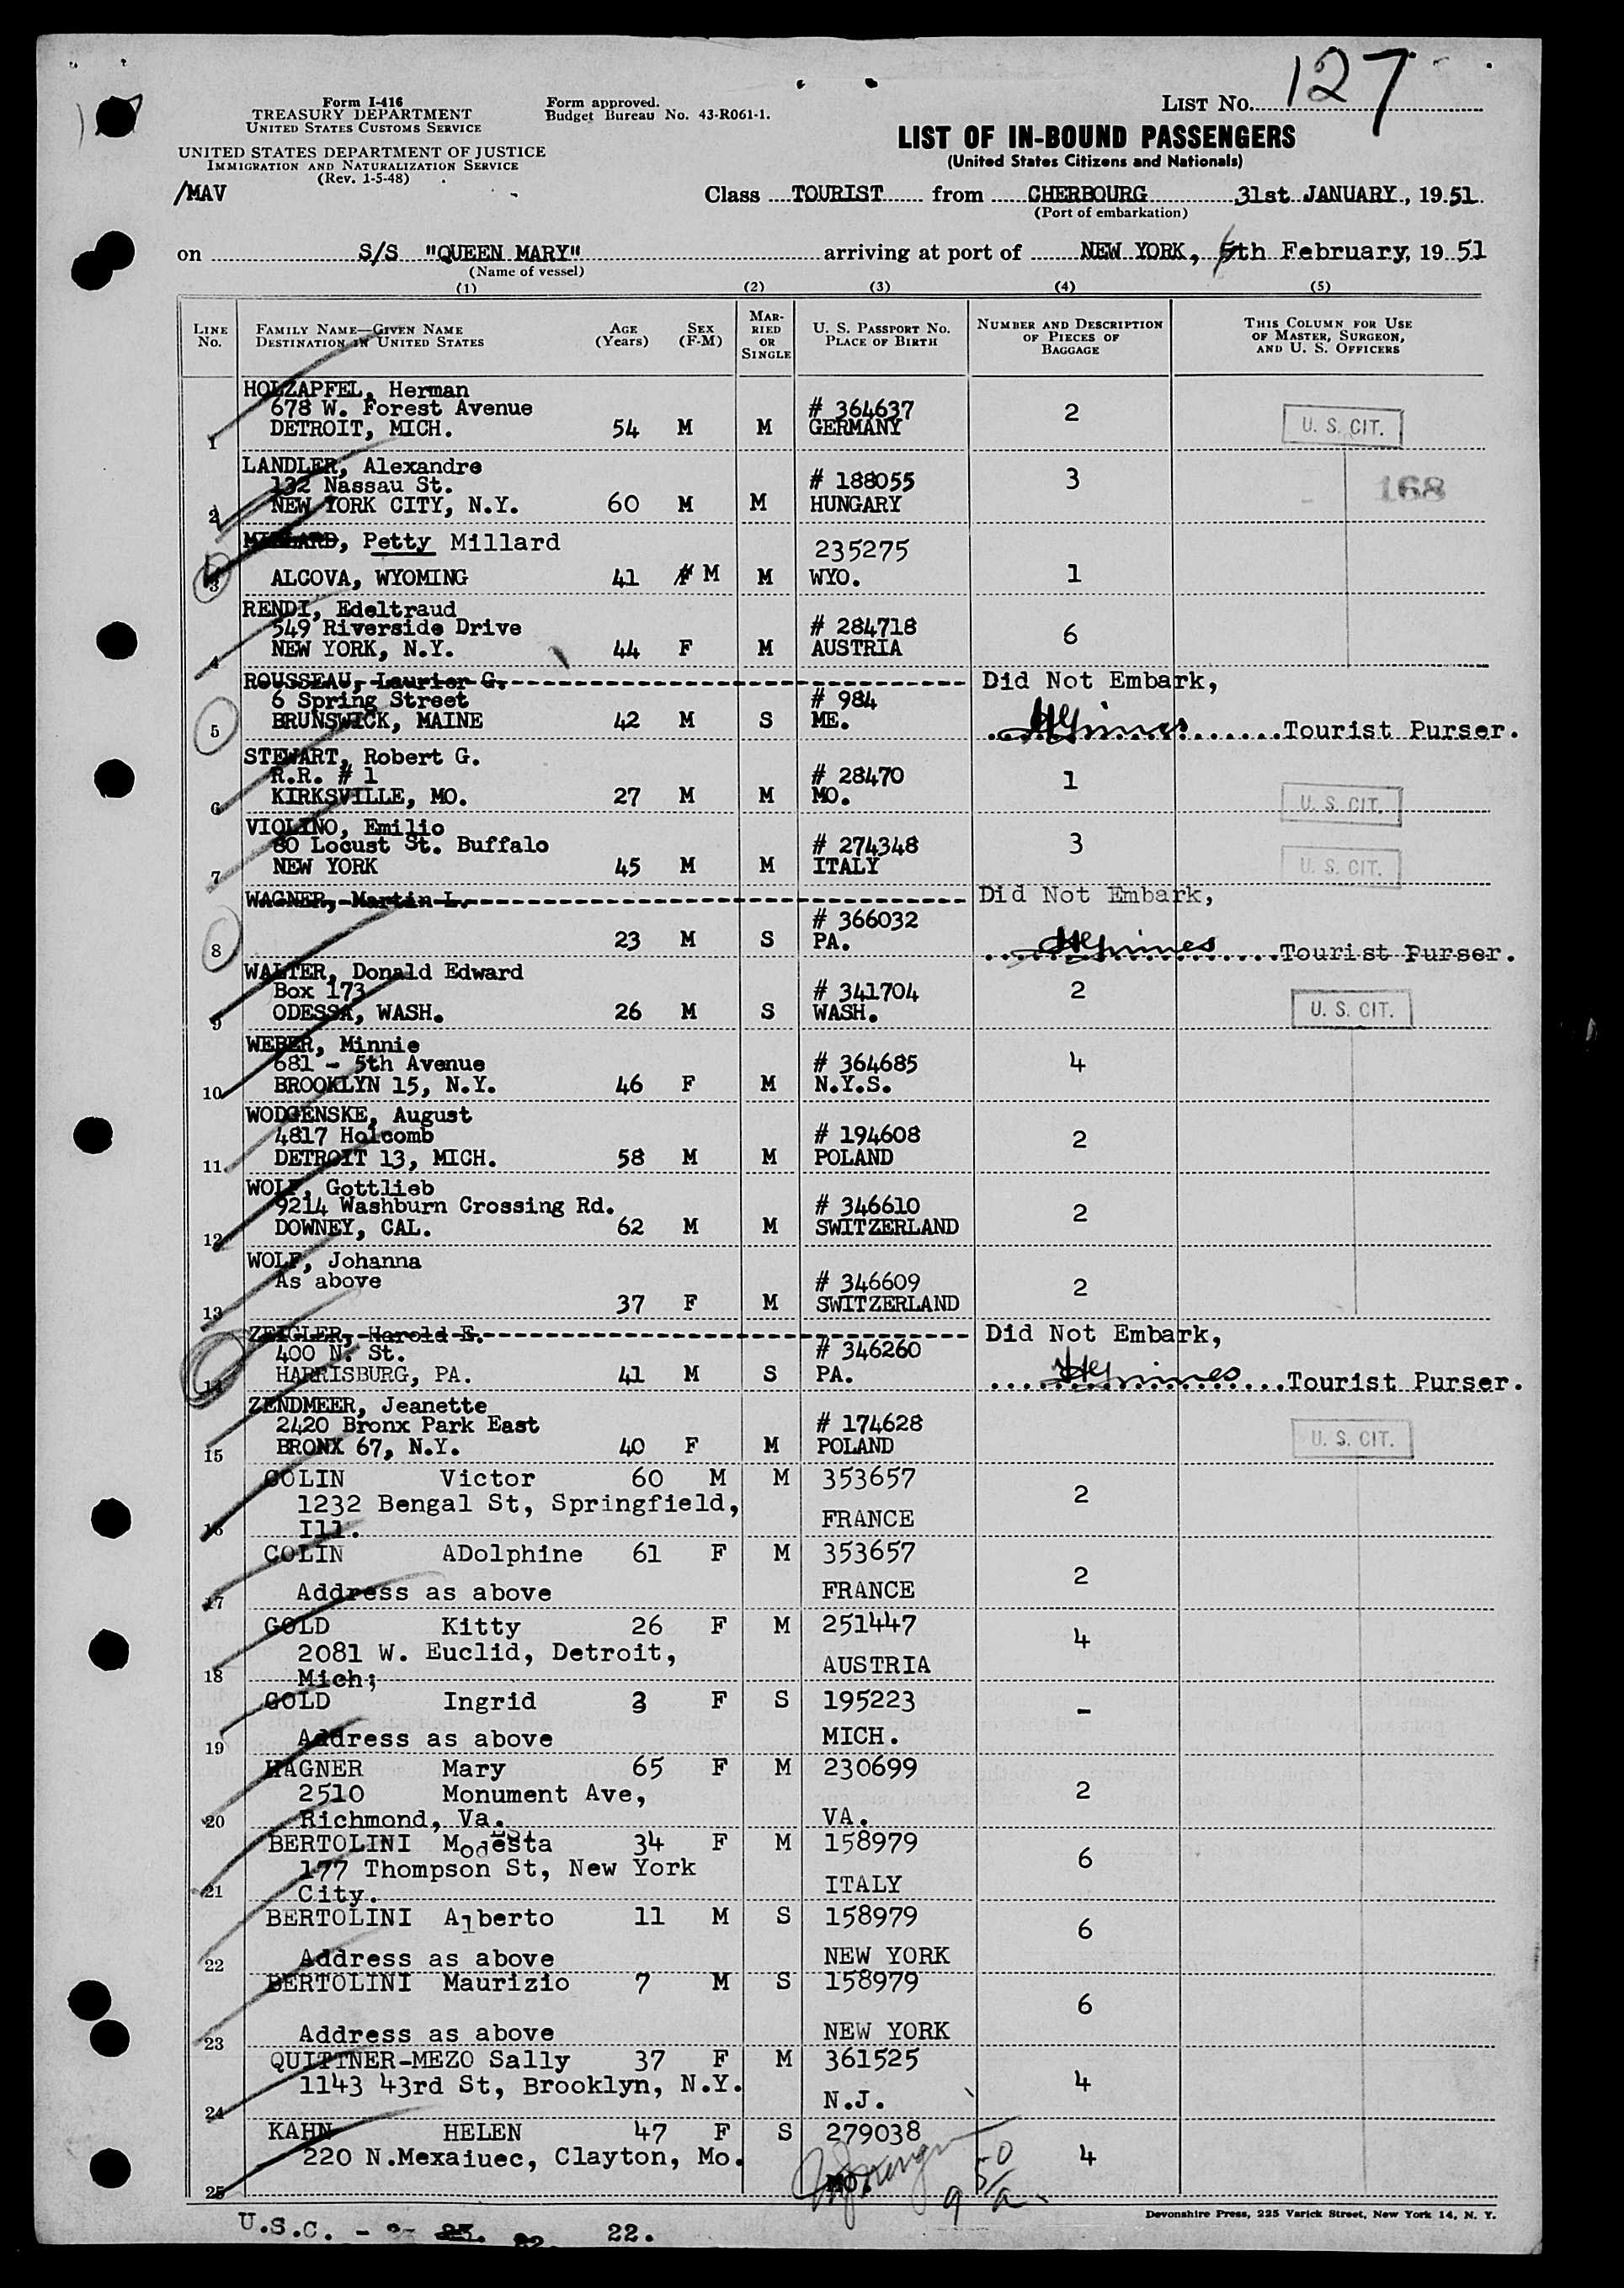 127
Form I-416
TREASURY DEPARTMENT
UNITED STATES CUSTOMS SERVICE
Form approved.
Budget Bureau No. 43-R061-1.
LIST NO.
UNITED STATES DEPARTMENT OF JUSTICE
IMMIGRATION AND NATURALIZATION SERVICE
(Rev. 1-5-48)
LIST OF IN-BOUND PASSENGERS
(United States Citizens and Nationals)
/MAV
Class TOURIST from CHERBOURG 31st JANUARY, 1951.
(Port of embarkation)
on S/S "QUEEN MARY" arriving at port of NEW YORK, 6th February, 19 51
(Name of vessel)
(1) (2) (3) (4) (5)
LINE NO. FAMILY NAME—GIVEN NAME DESTINATION IN UNITED STATES AGE (Years) SEX (F-M) MARRIED OR SINGLE U. S. PASSPORT NO. PLACE OF BIRTH NUMBER AND DESCRIPTION OF PIECES OF BAGGAGE THIS COLUMN FOR USE OF MASTER, SURGEON, AND U. S. OFFICERS
HOLZAPFEL, Herman
678 W. Forest Avenue # 364637 2
1 DETROIT, MICH. 54 M M GERMANY U. S. CIT.
LANDLER, Alexandre
132 Nassau St. # 188055 3 168
2 NEW YORK CITY, N.Y. 60 M M HUNGARY
MILLARD, Petty Millard 235275
3 ALCOVA, WYOMING 41 F M M WYO. 1
RENDI, Edeltraud
549 Riverside Drive # 284718 6
4 NEW YORK, N.Y. 44 F M AUSTRIA
ROUSSEAU, Laurier G. Did Not Embark,
6 Spring Street # 984
5 BRUNSWICK, MAINE 42 M S ME. Tourist Purser.
STEWART, Robert G.
R.R. # 1 # 28470 1
6 KIRKSVILLE, MO. 27 M M MO. U. S. CIT.
VIOLINO, Emilio
80 Locust St. Buffalo # 274348 3
7 NEW YORK 45 M M ITALY U. S. CIT.
WAGNER, Martin L. Did Not Embark,
# 366032
8 23 M S PA. Tourist Purser.
WALTER, Donald Edward
Box 173 # 341704 2
9 ODESSA, WASH. 26 M S WASH. U. S. CIT.
WEBER, Minnie
681 - 5th Avenue # 364685 4
10 BROOKLYN 15, N.Y. 46 F M N.Y.S.
WODGENSKE, August
4817 Holcomb # 194608 2
11 DETROIT 13, MICH. 58 M M POLAND
WOLF, Gottlieb
9214 Washburn Crossing Rd. # 346610 2
12 DOWNEY, CAL. 62 M M SWITZERLAND
WOLF, Johanna
As above # 346609 2
13 37 F M SWITZERLAND
ZEIGLER, Harold E. Did Not Embark,
400 N. St. # 346260
14 HARRISBURG, PA. 41 M S PA. Tourist Purser.
ZENDMEER, Jeanette
2420 Bronx Park East # 174628
15 BRONX 67, N.Y. 40 F M POLAND U. S. CIT.
COLIN Victor 60 M M 353657
1232 Bengal St, Springfield, 2
16 Ill. FRANCE
COLIN ADolphine 61 F M 353657
17 Address as above FRANCE 2
GOLD Kitty 26 F M 251447
2081 W. Euclid, Detroit, AUSTRIA 4
18 Mich;
GOLD Ingrid 3 F S 195223 -
19 Address as above MICH.
HAGNER Mary 65 F M 230699
2510 Monument Ave, 2
20 Richmond, Va. VA.
BERTOLINI Modesta 34 F M 158979
177 Thompson St, New York ITALY 6
21 City.
BERTOLINI Alberto 11 M S 158979 6
22 Address as above NEW YORK
BERTOLINI Maurizio 7 M S 158979 6
23 Address as above NEW YORK
QUITTNER-MEZO Sally 37 F M 361525
1143 43rd St, Brooklyn, N.Y. 4
24 N.J.
KAHN HELEN 47 F S 279038
220 N.Mexaiuec, Clayton, Mo. 4
25 MO.
9 50/a
Devonshire Press, 225 Varick Street, New York 14, N. Y.
U.S.C. - 25. 22. 22.